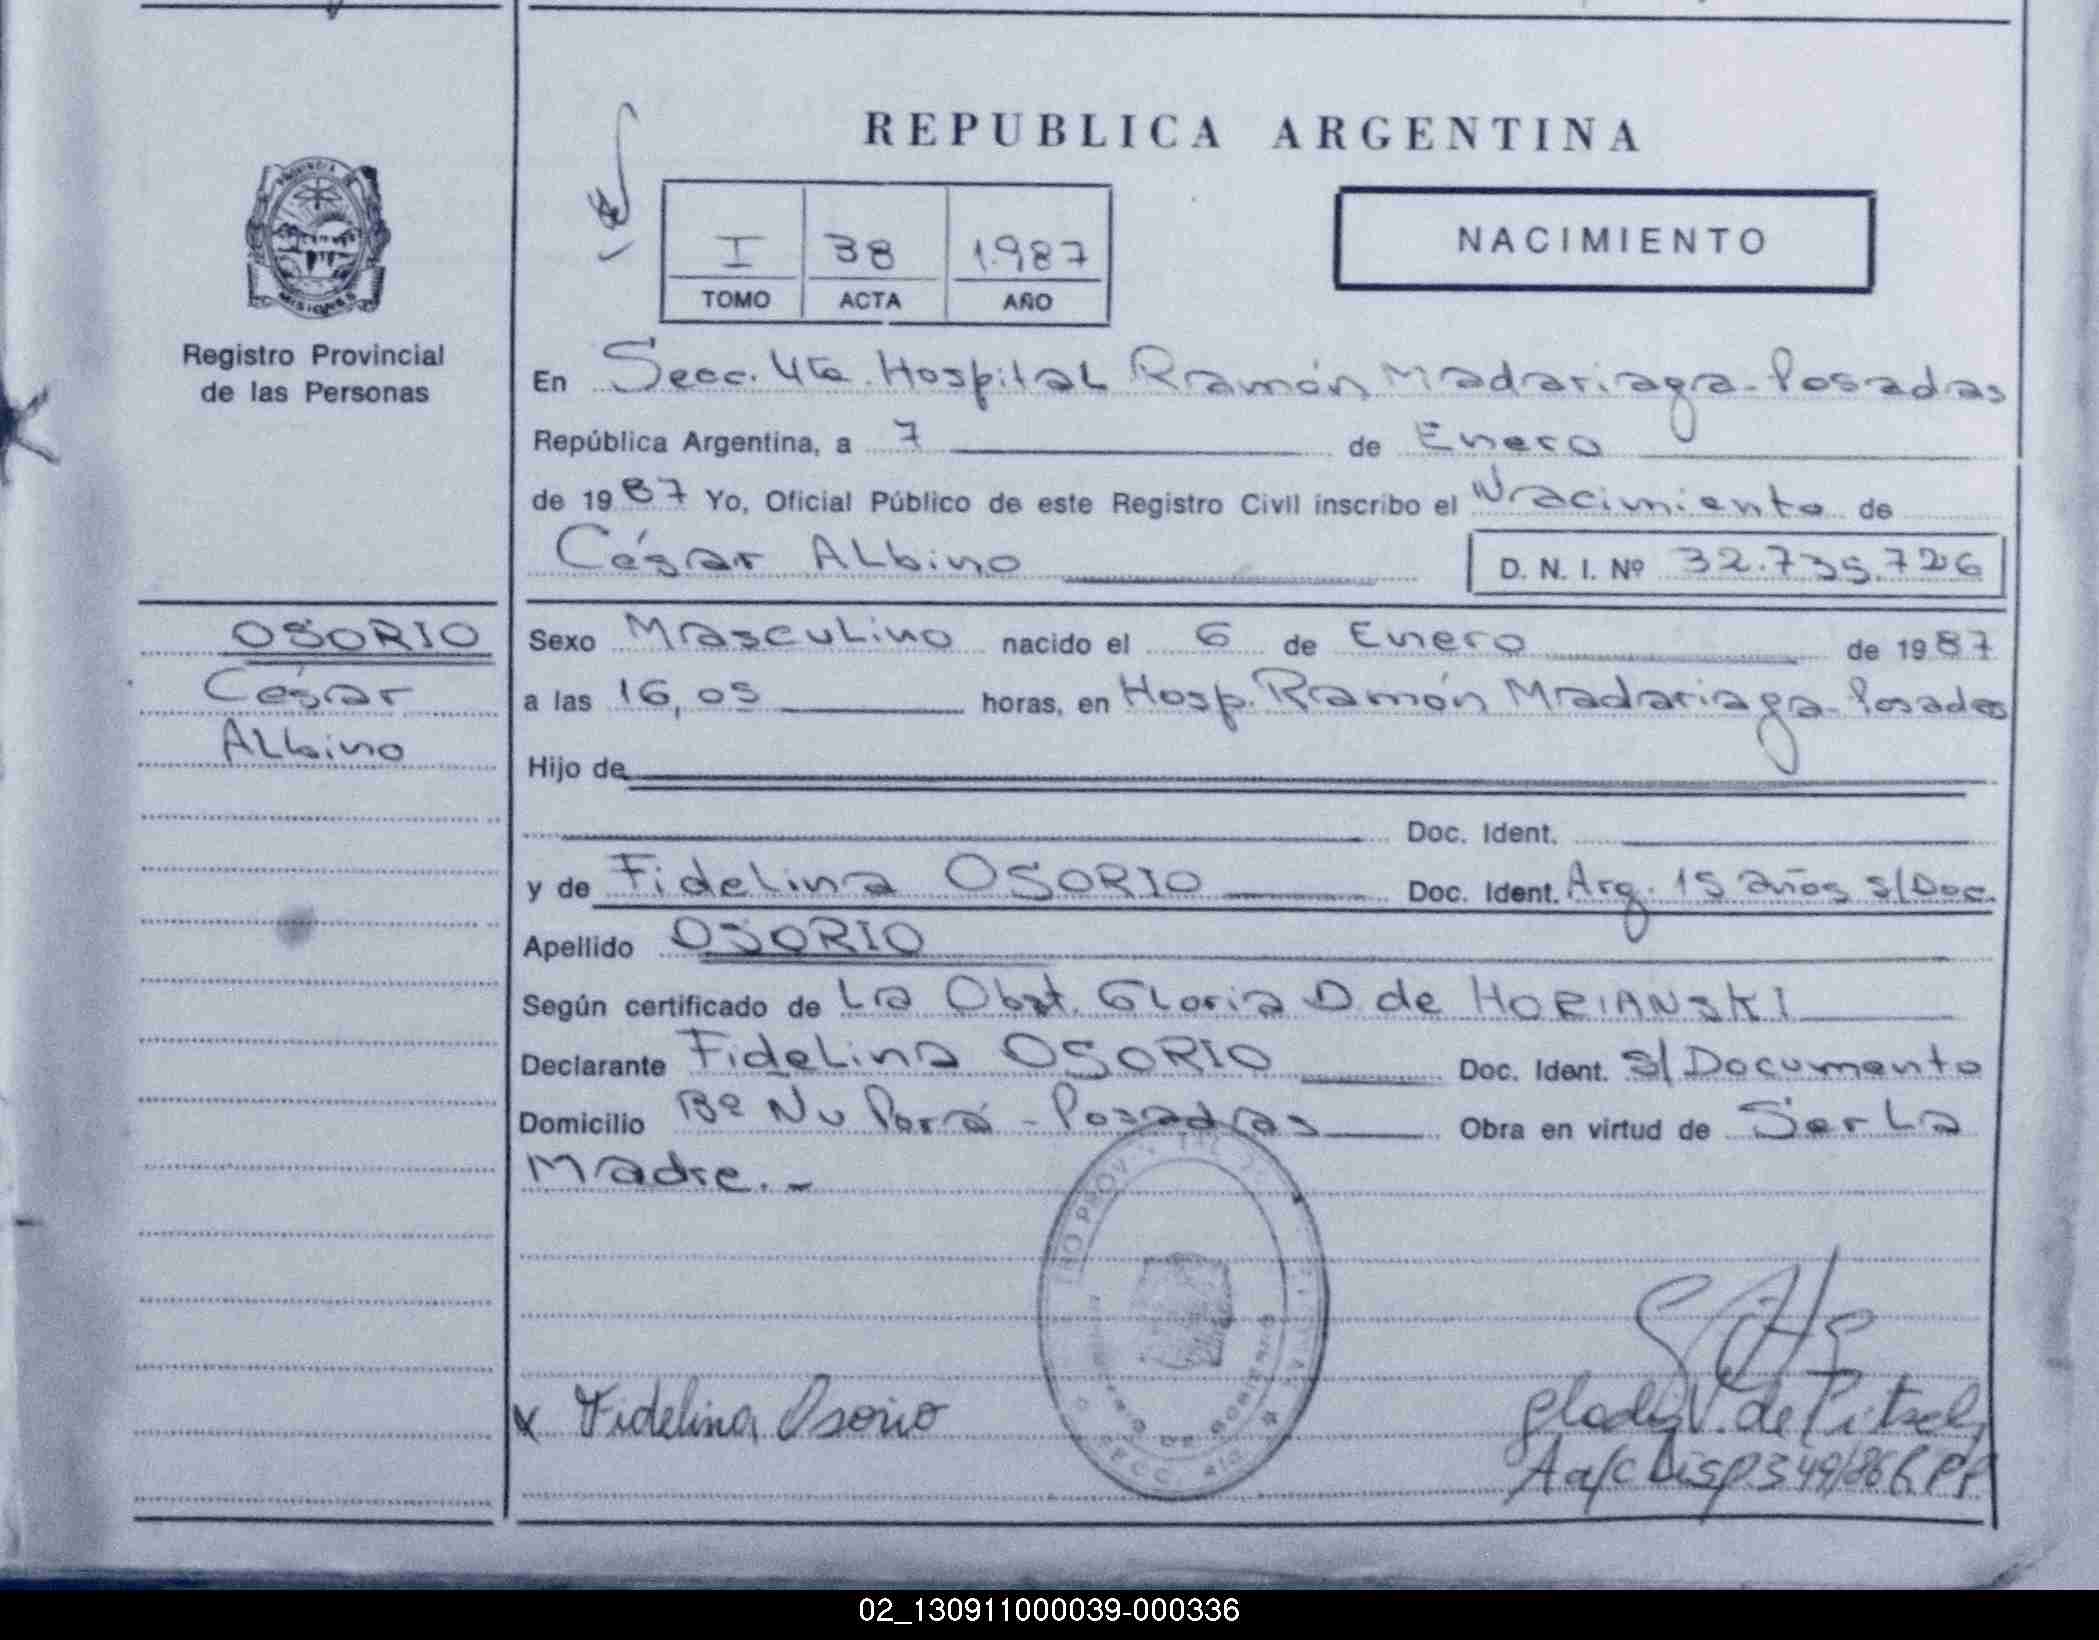 REPUBLICA ARGENTINA
PROVINCIA DE
MISIONES
I 38 1.987
TOMO ACTA AÑO
NACIMIENTO
Registro Provincial
de las Personas
En Secc. 4ta. Hospital Ramón Madariaga - Posadas
República Argentina, a 7 de Enero
de 1987 Yo, Oficial Público de este Registro Civil inscribo el Nacimiento de
César Albino D. N. I. Nº 32.735.726
OSORIO
César
Albino
Sexo Masculino nacido el 6 de Enero de 1987
a las 16,05 horas, en Hosp. Ramón Madariaga - Posadas
Hijo de
Doc. Ident.
y de Fidelina OSORIO Doc. Ident. Arg. 15 años s/Doc.
Apellido OSORIO
Según certificado de La Obst. Gloria D. de HORIANSKI
Declarante Fidelina OSORIO Doc. Ident. s/Documento
Domicilio Bº Ñu Porá - Posadas Obra en virtud de Ser La
Madre. -
Fidelina Osorio
Gladys V. de
349/86 R.P.P
02_130911000039-000336